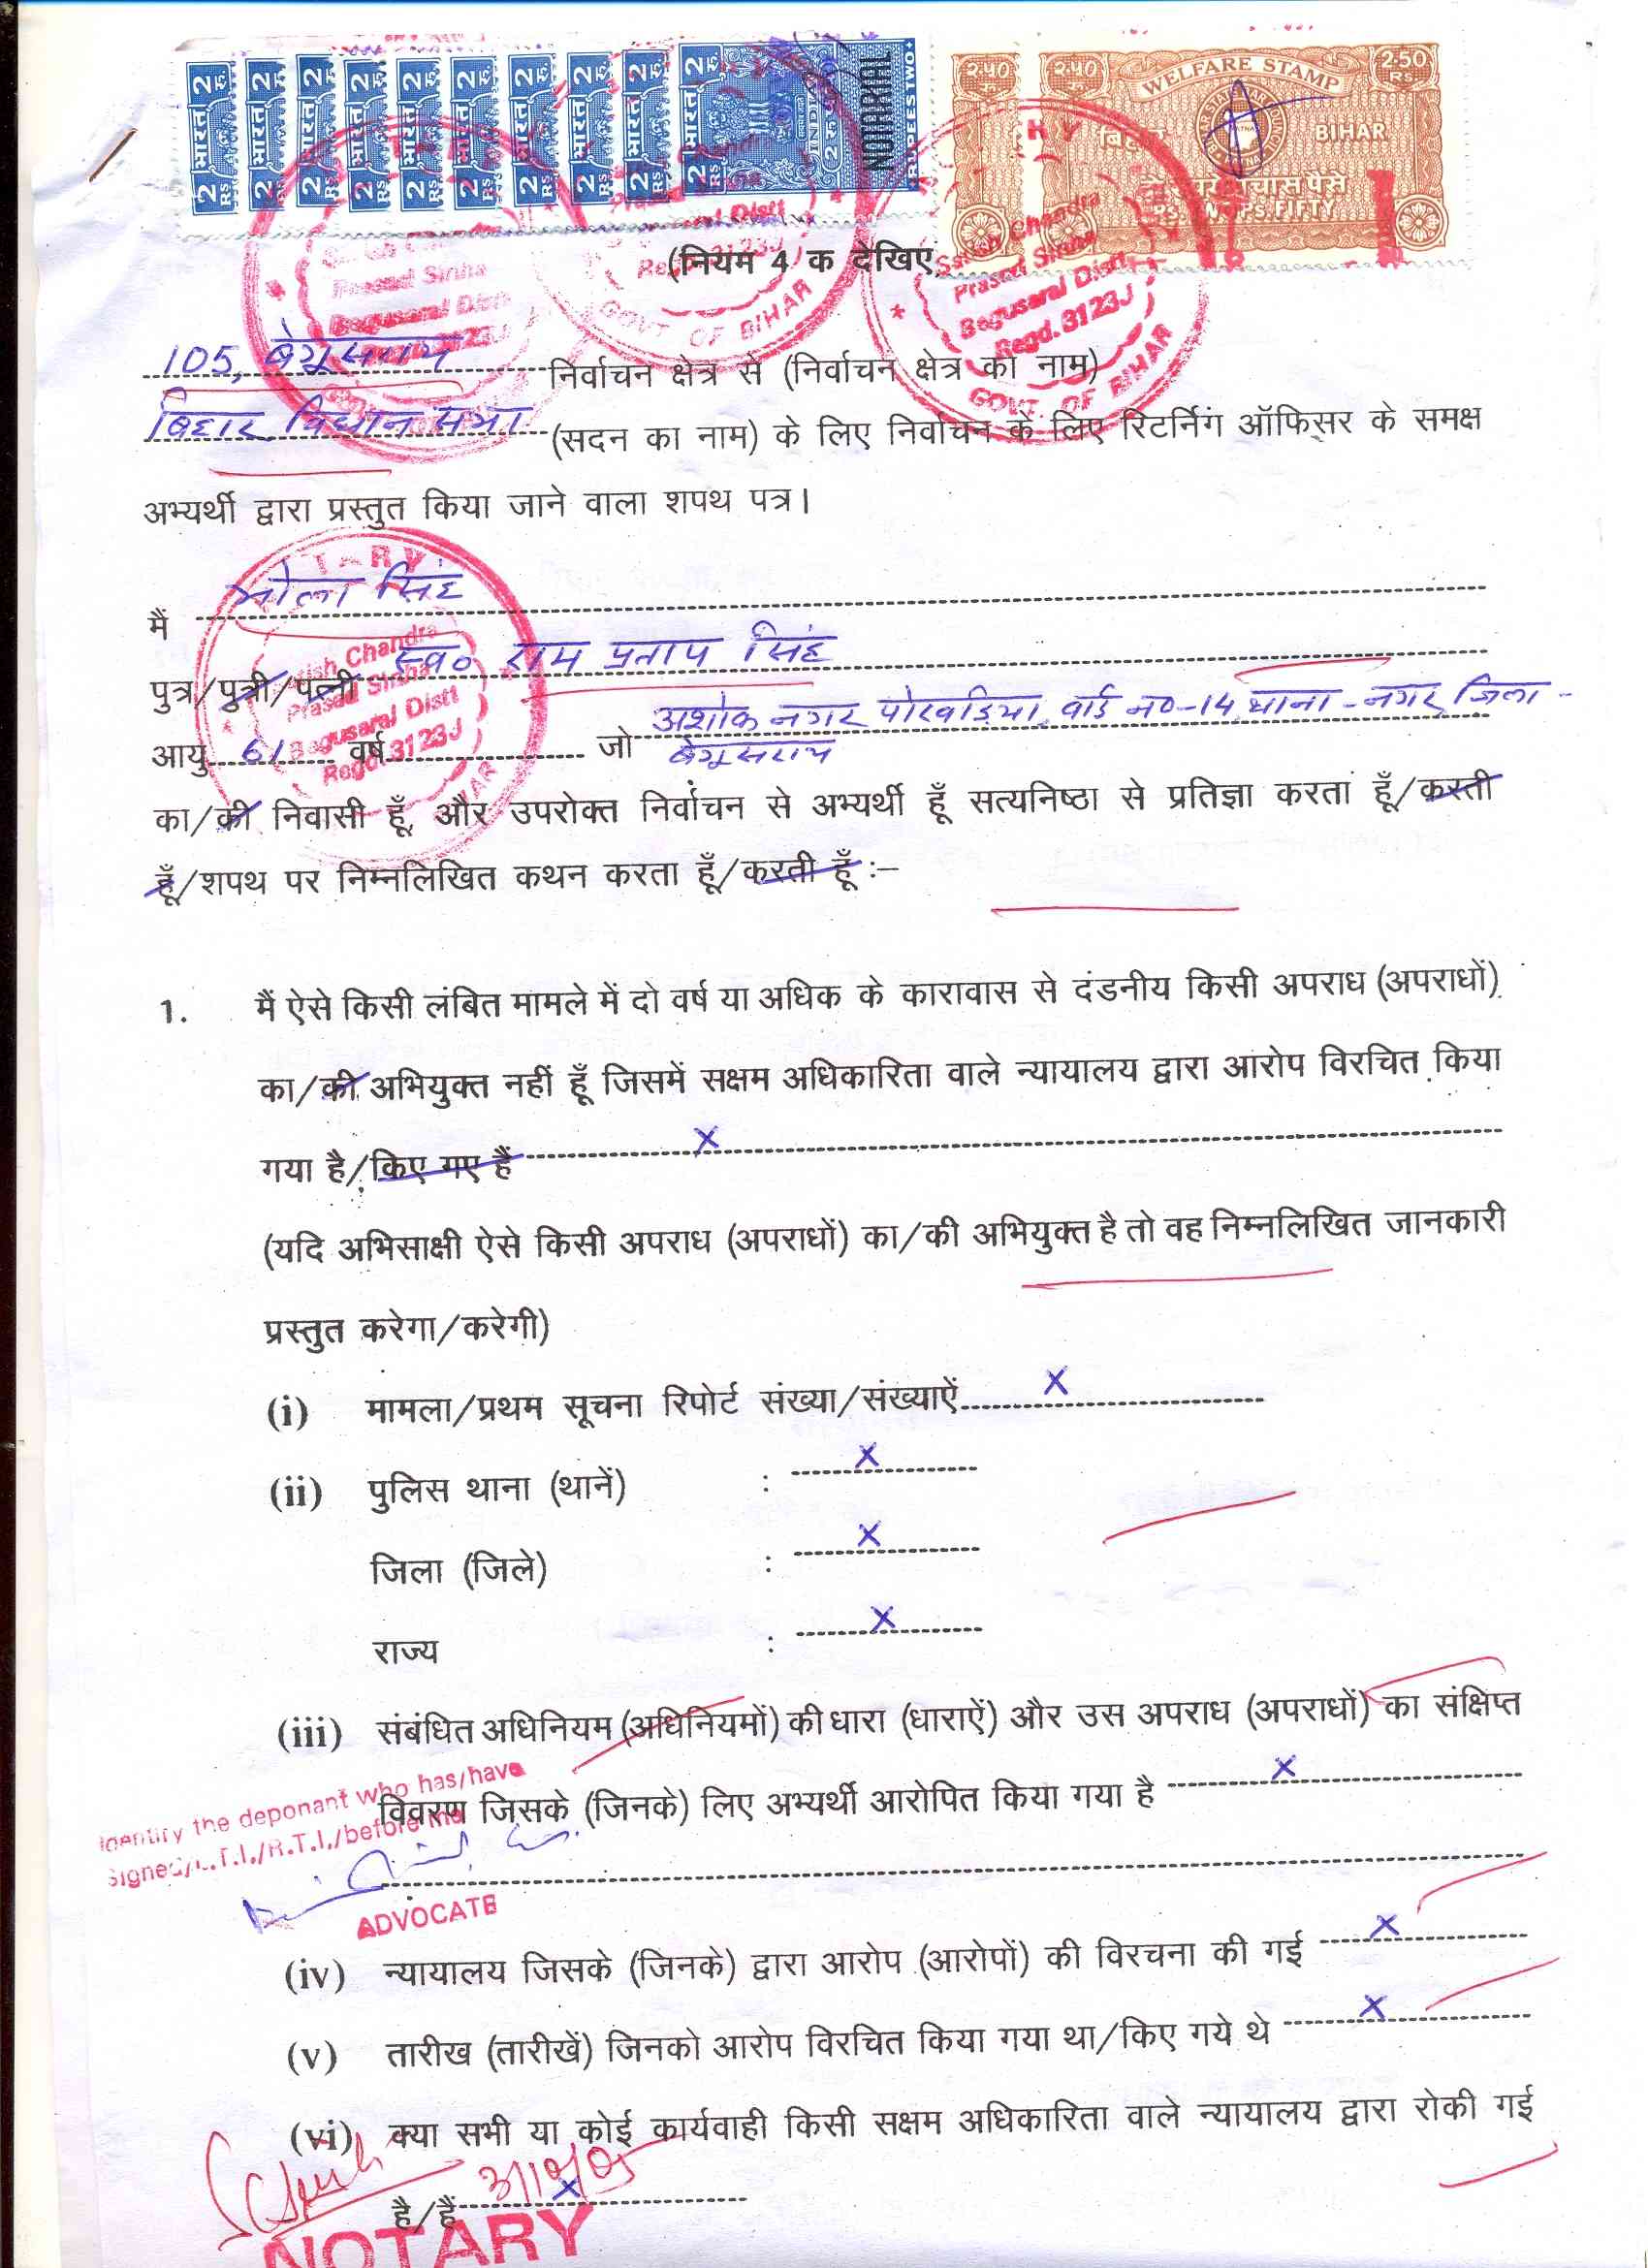 2 रु. भारत 2 RS
2 रु. भारत 2 RS
2 रु. भारत 2 RS
2 रु. भारत 2 RS
2 रु. भारत 2 RS
2 रु. भारत 2 RS
2 रु. भारत 2 RS
2 रु. भारत 2 RS
2 रु. भारत 2 RS
2 रु. भारत 2 RS INDIA NOTARIAL RUPEES TWO
२.५० २.५० WELFARE STAMP 2.50 RS
BIHAR
RS. TWO PS. FIFTY
Satish Chandra
Prasad Sinha
Begusarai Distt
Regd. 3123J
GOVT. OF BIHAR
(नियम 4 क देखिए
105, बेगूसराय निर्वाचन क्षेत्र से (निर्वाचन क्षेत्र का नाम)
बिहार विधान सभा (सदन का नाम) के लिए निर्वाचन के लिए रिटर्निंग ऑफिसर के समक्ष
अभ्यर्थी द्वारा प्रस्तुत किया जाने वाला शपथ पत्र।
मैं भोला सिंह
पुत्र/पुत्री/पत्नी स्व० राम प्रताप सिंह
आयु 61 वर्ष जो अशोक नगर पोखड़िया वार्ड न०-14 थाना-नगर जिला-
बेगूसराय
का/की निवासी हूँ, और उपरोक्त निर्वाचन से अभ्यर्थी हूँ सत्यनिष्ठा से प्रतिज्ञा करता हूँ/करती
हूँ/शपथ पर निम्नलिखित कथन करता हूँ/करती हूँ :–
1. मैं ऐसे किसी लंबित मामले में दो वर्ष या अधिक के कारावास से दंडनीय किसी अपराध (अपराधों)
का/की अभियुक्त नहीं हूँ जिसमें सक्षम अधिकारिता वाले न्यायालय द्वारा आरोप विरचित किया
गया है/किए गए हैं x
(यदि अभिसाक्षी ऐसे किसी अपराध (अपराधों) का/की अभियुक्त है तो वह निम्नलिखित जानकारी
प्रस्तुत करेगा/करेगी)
(i) मामला/प्रथम सूचना रिपोर्ट संख्या/संख्याऐं x
(ii) पुलिस थाना (थानें) : x
जिला (जिले) : x
राज्य : x
(iii) संबंधित अधिनियम (अधिनियमों) की धारा (धाराऐं) और उस अपराध (अपराधों) का संक्षिप्त
विवरण जिसके (जिनके) लिए अभ्यर्थी आरोपित किया गया है x
Identify the deponant who has/have
Signed/L.T.I./R.T.I./before me
ADVOCATE
(iv) न्यायालय जिसके (जिनके) द्वारा आरोप (आरोपों) की विरचना की गई x
(v) तारीख (तारीखें) जिनको आरोप विरचित किया गया था/किए गये थे x
(vi) क्या सभी या कोई कार्यवाही किसी सक्षम अधिकारिता वाले न्यायालय द्वारा रोकी गई
है/हैं x
NOTARY